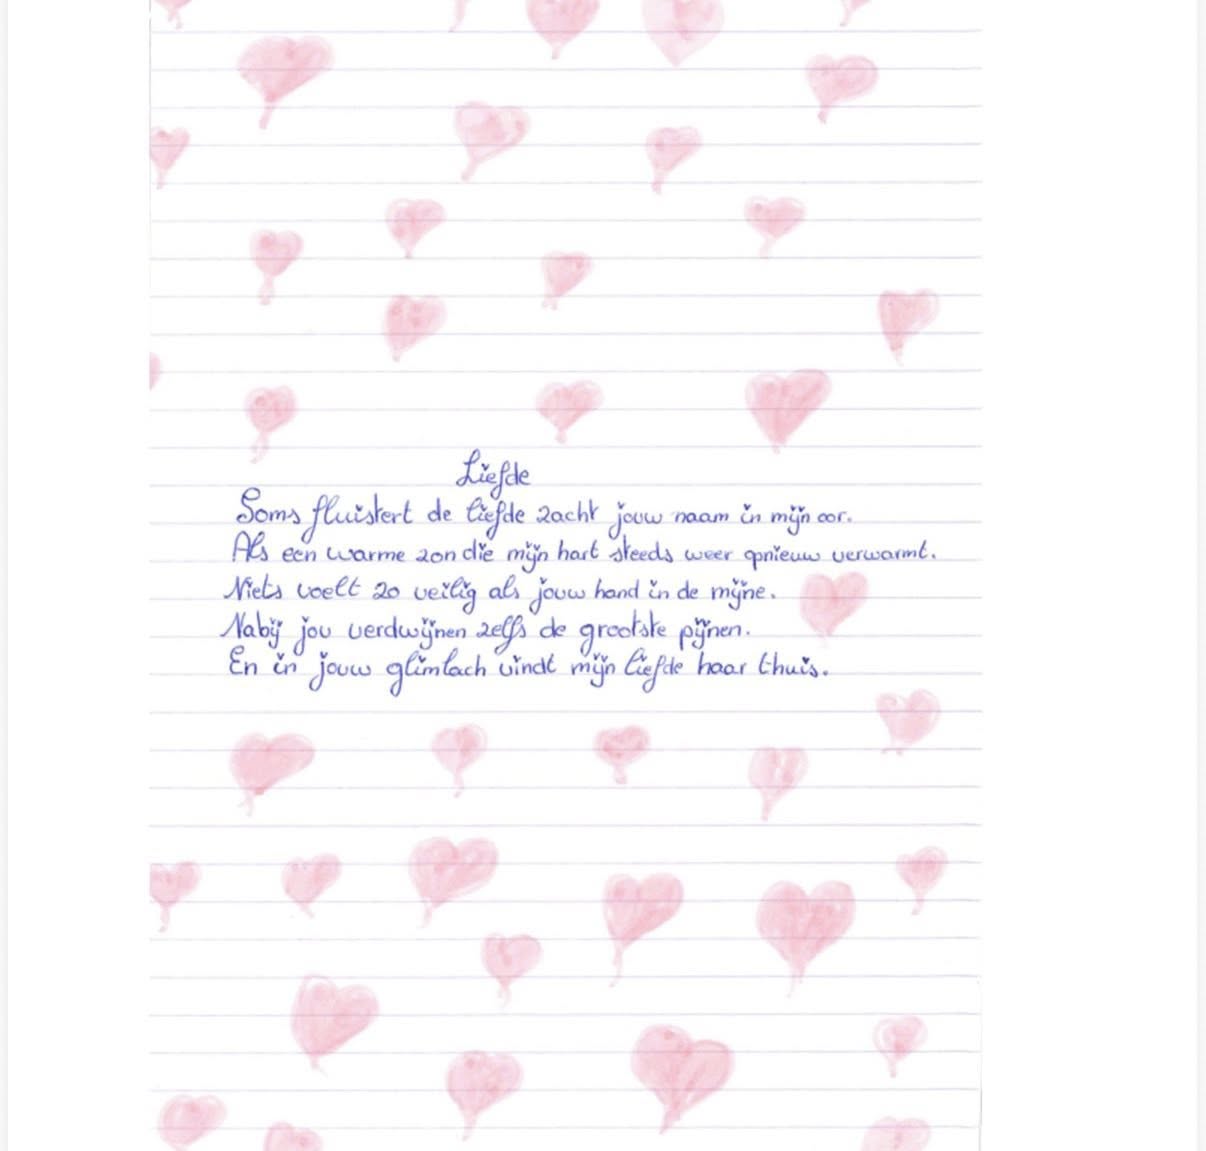 Liefde
Soms fluistert de liefde zacht jouw naam in mijn oor.
Als een warme zon die mijn hart steeds weer opnieuw verwarmt.
Niets voelt zo veilig als jouw hand in de mijne.
Nabij jou verdwijnen zelfs de grootste pijnen.
En in jouw glimlach vindt mijn liefde haar thuis.